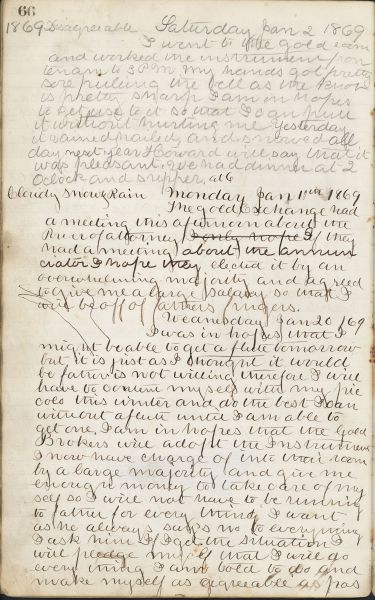 66
1869 Disagreeable Saturday Jan 2 1869
I went to the gold room
and worked the instrument from
ten am to 3 P.M. my hands got pretty
sore pulling the bell as the knob
is pretty sharp I am in hopes
to get use to it so that I can pull
it without hurting me Yesterday
it rained hard and snowed all
day next year Howard will say that it
was pleasant we had dinner at 2
Oclock and supper at 6
Cloudy Snow & Rain Monday Jan 11th 1869
The gold Exchange had
a meeting this afternoon about the
Power of attorney I only hope I they
had a meeting about the annun
ciator I hope they elected it by an
overwhelming majority and agreed
to give me a large Salary so that I
will be off of fathers fingers.
Wednesday Jan 20 /69
I was in hopes that I
might be able to get a flute tomorrow
but it is just as I thought it would
be father is not willing therefore I will
have to content myself with my pic
colo this winter and do the best I can
without a flute until I am able to
get one. I am in hopes that the Gold
Brokers will adopt the Instrument
I now have charge of into their room
by a large majority and give me
enough money to take care of my
self so I will not have to be running
to father for every thing I want
as he always says no to every thing
I ask him If I get the situation I
will pledge myself that I will do
every thing I am told to do and
make myself as agreeable as pos